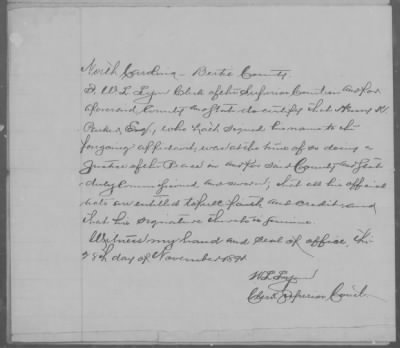 North Carolina - Bertie County.
I, W L Lyon Clerk of the Superior Court in and for
aforesaid County and State do certify that Henry
Parker, Esq., who hath signed his name to the
forgoing affidavit, was at the time of so doing a
Justice of the Peace in and for said County and State
duly Commissioned, and sworn, that all his official
acts are entitled to full faith and credit and
that his signature thereto is genuine.
Witness my hand and seal of office, this
28th day of November 1891
W L Lyon
Clerk Superior Court